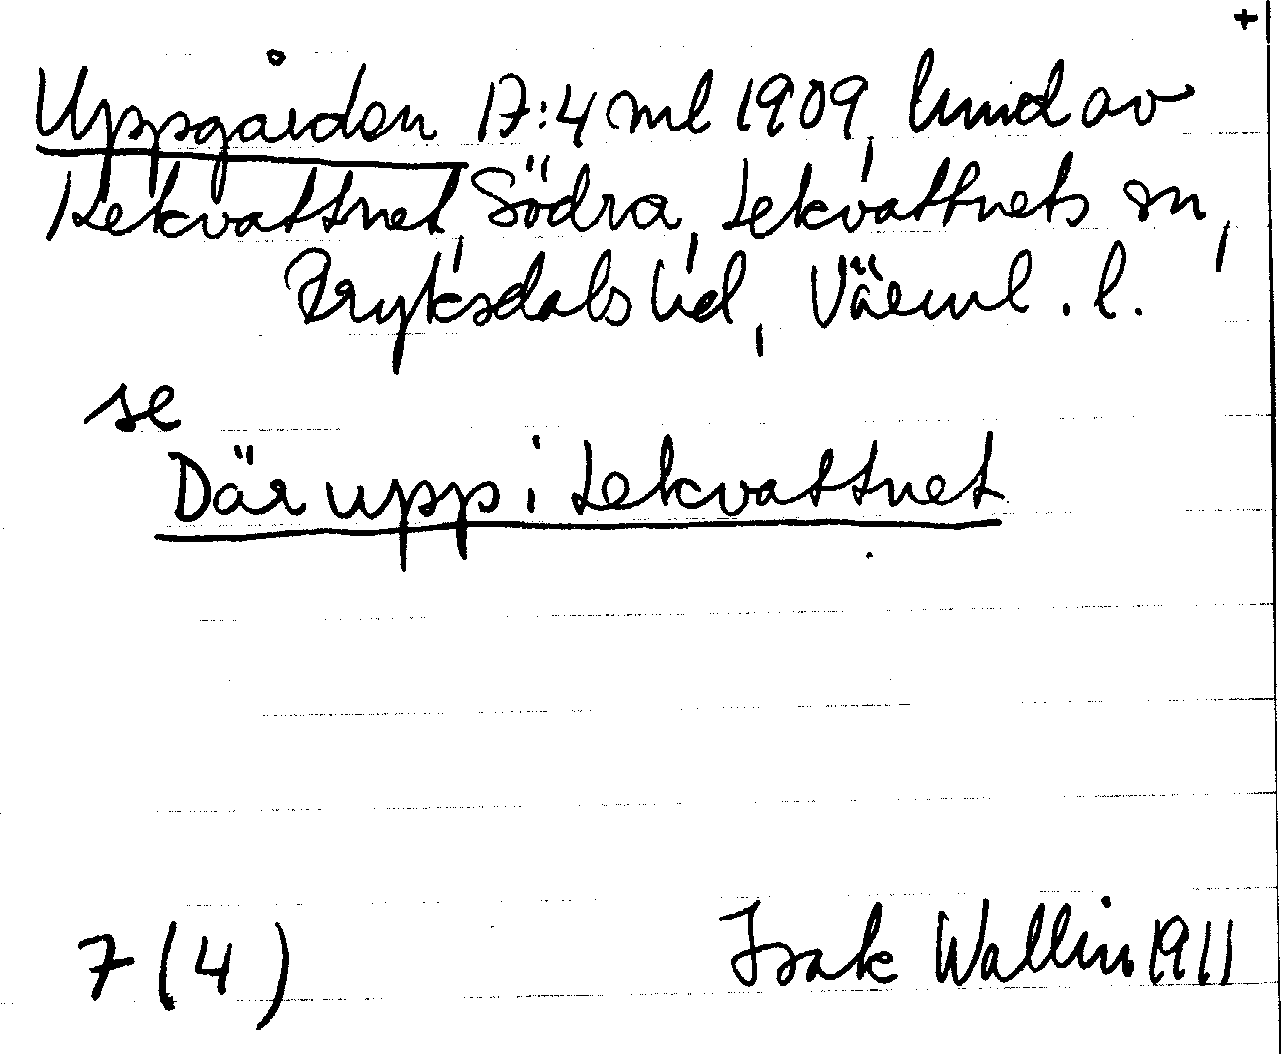 +
Uppgården 17:4 ml 1909, lmd av
Lekvattnet, Södra, Lekvattnets sn,
Fryksdals hd, Värml. l.
se
Där upp i Lekvattnet
7 (4) Isak Wallin 1911